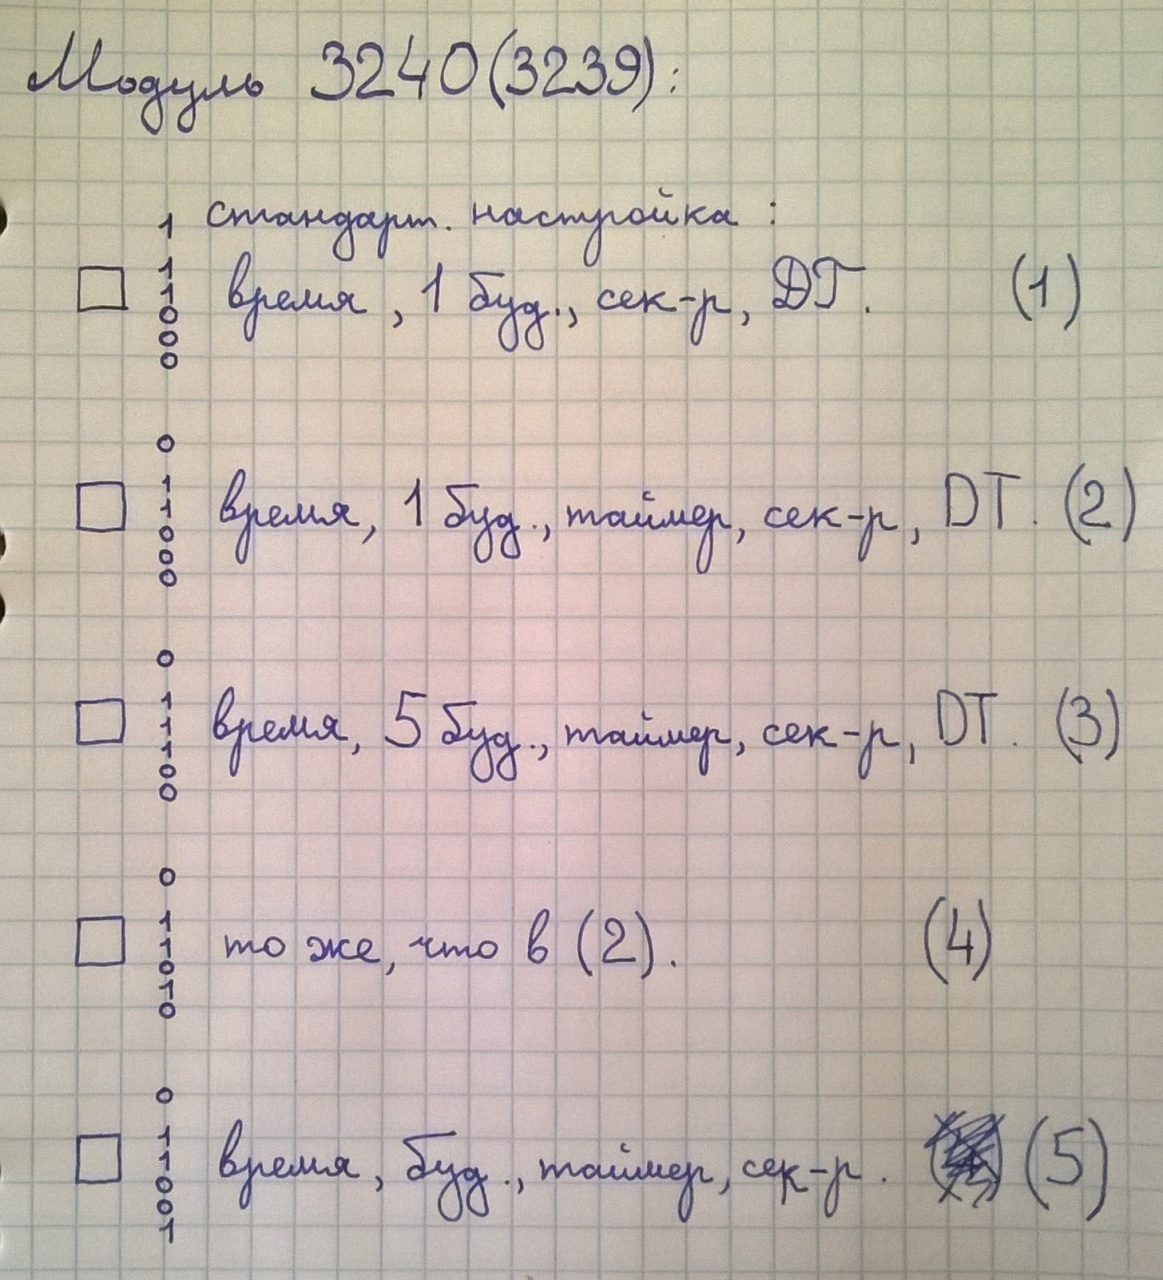 Модуль 3240(3239):
1 стандарт. настройка :
1
1 время, 1 буд., сек-р, DT. (1)
0
0
0
0
1
1 время, 1 буд., таймер, сек-р, DT. (2)
0
0
0
0
1
1 время, 5 буд., таймер, сек-р, DT. (3)
1
0
0
0
1
1 то же, что в (2). (4)
0
1
0
0
1
1 время, буд., таймер, сек-р. (5)
0
0
1